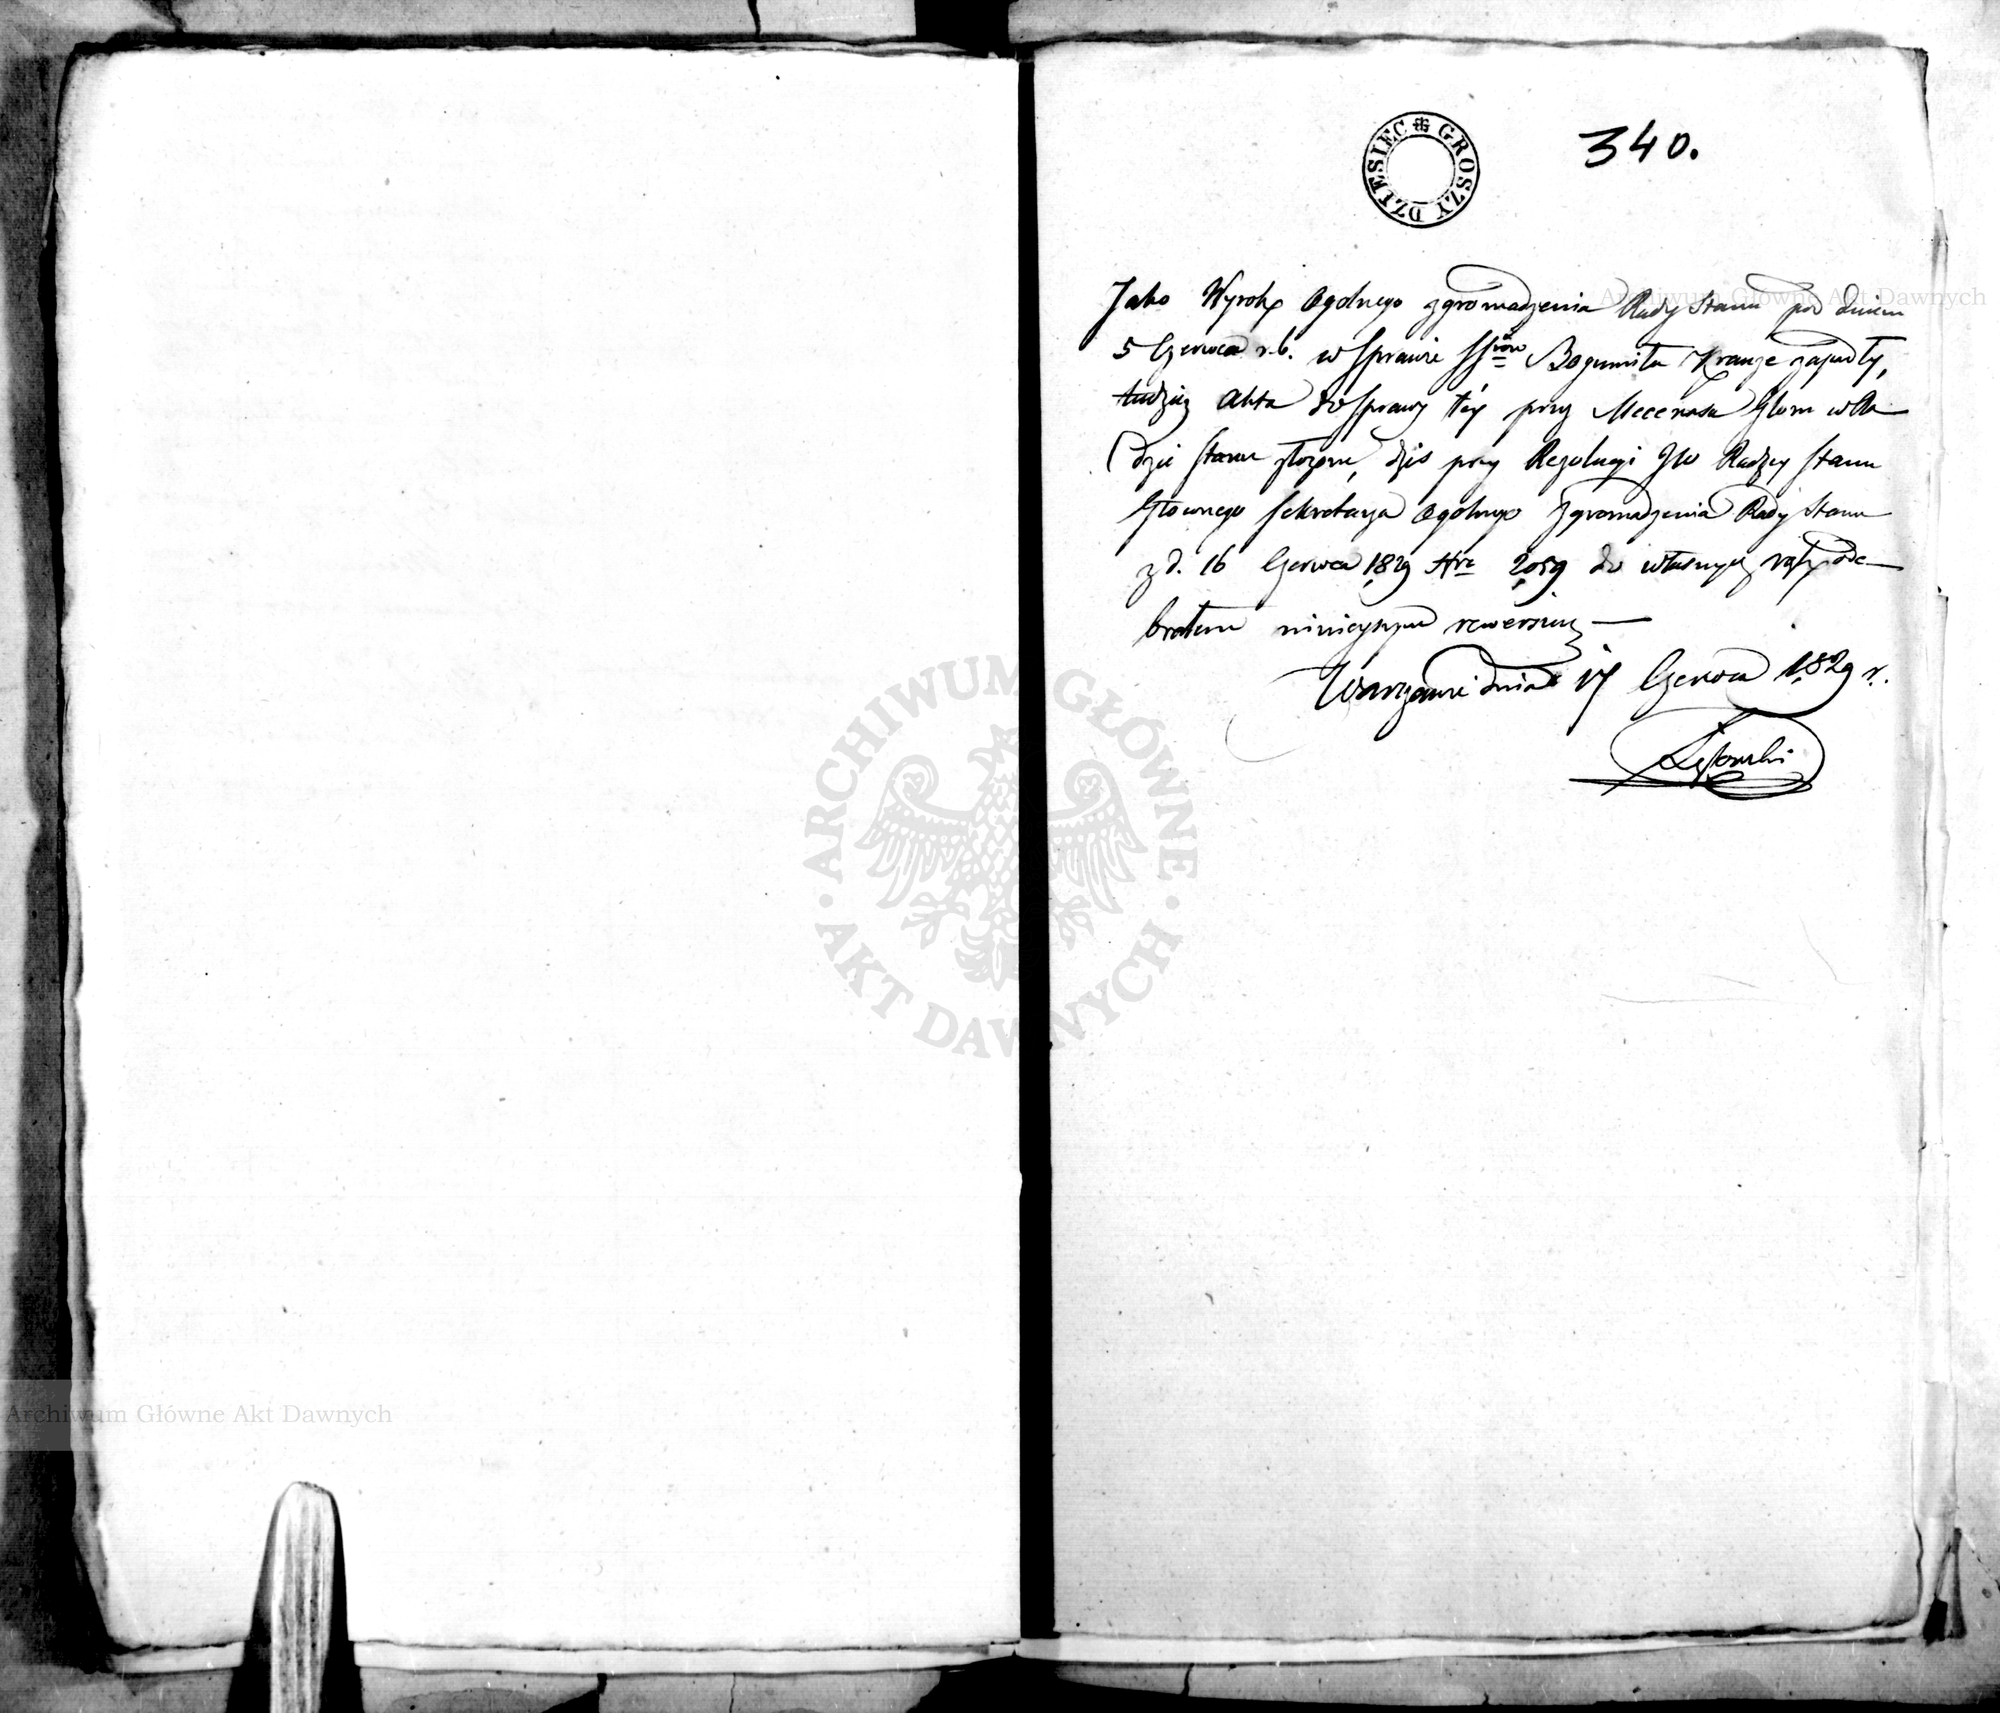 DZIESIEC GROSZY
340.
Jako Wyrok Ogolnego zgromadzenia Rady Stanu pod dniem
5 Czerwca r. b. w Sprawie SSrów Bogumiła Krauze zapadły,
tudzież Akta do Sprawy téy przy Mecenasa Glom w Ra
dzie Stanu złożone, dziś przy Rezolucyi JW Radzcy Stanu
Głownego Sekretarza Ogolnego Zgromadzenia Rady Stanu
z d. 16 Czerwca 1829 Nro 2059 do własnych rąk ode
brałem ninieyszym rewersuię
Warszawie dnia 17 Czerwca 1829 r.
ARCHIWUM GŁÓWNE AKT DAWNYCH
Archiwum Główne Akt Dawnych
Archiwum Główne Akt Dawnych